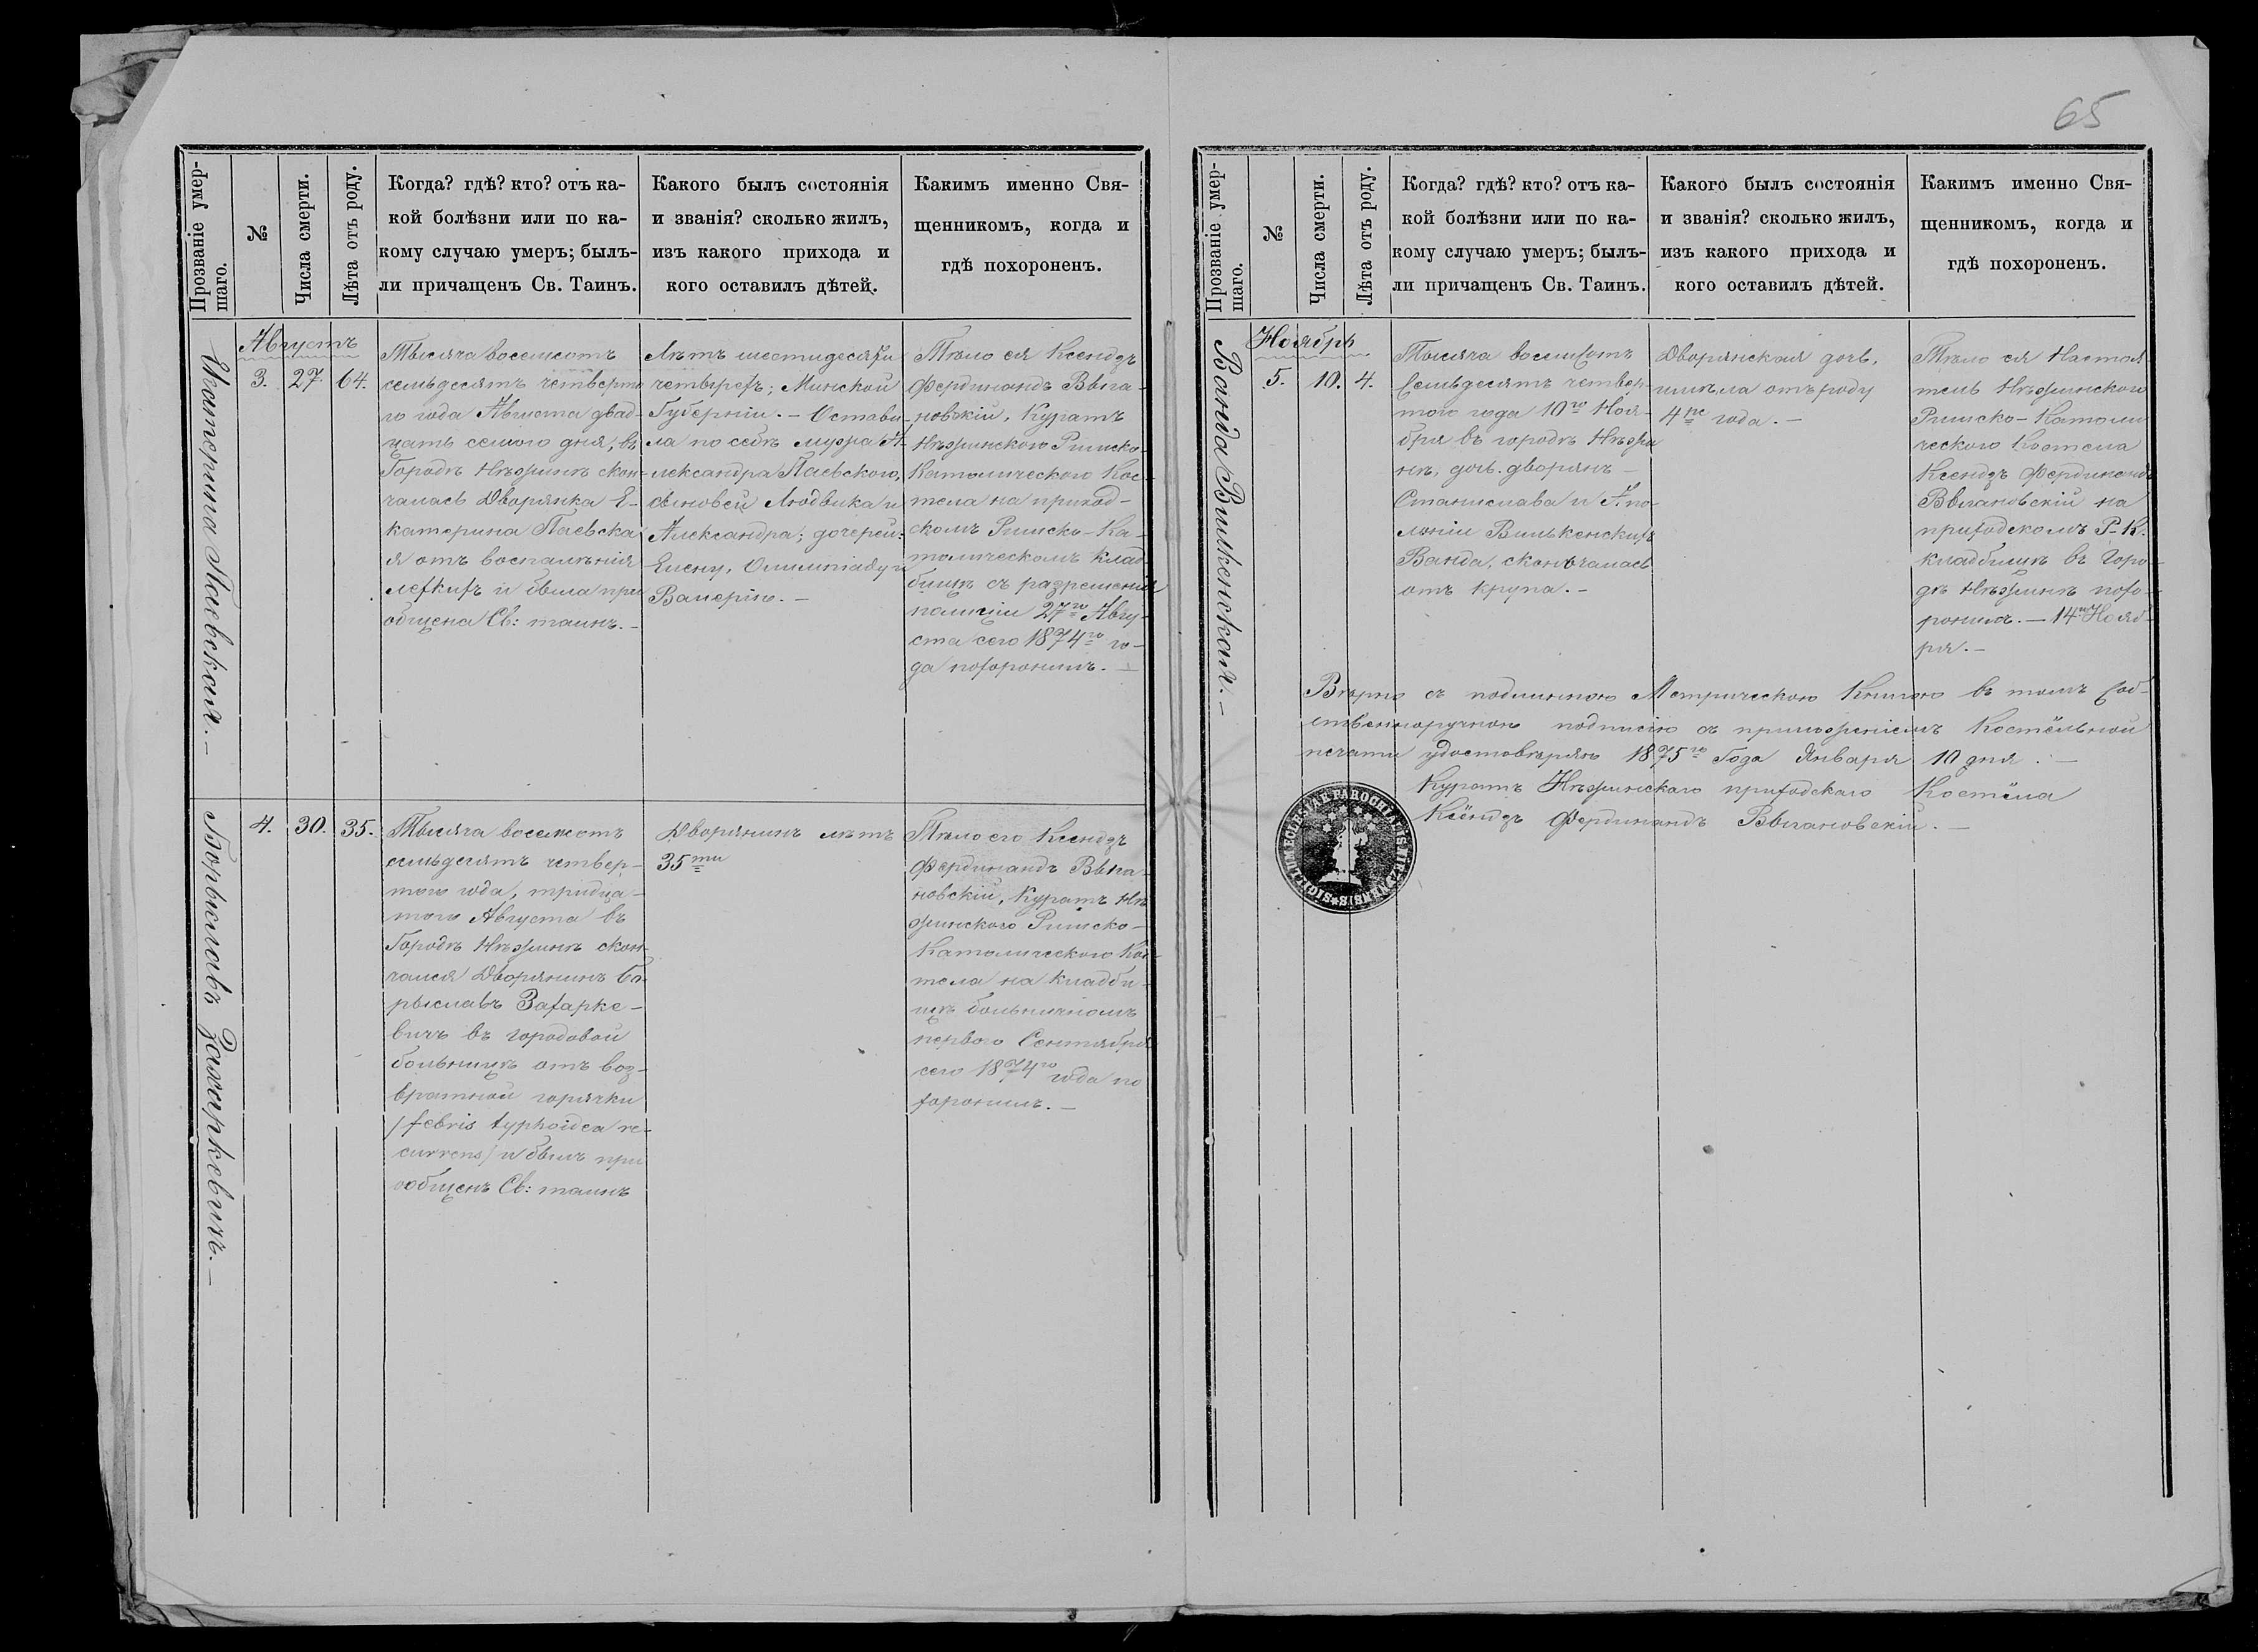 65
Прозваніе умер-
шаго.
№
Числа смерти.
Лѣта отъ роду.
Когда? гдѣ? кто? отъ ка-
кой болѣзни или по ка-
кому случаю умеръ; былъ-
ли причащенъ Св. Таинъ.
Какого былъ состоянія
и званія? сколько жилъ,
изъ какого прихода и
кого оставилъ дѣтей.
Какимъ именно Свя-
щенникомъ, когда и
гдѣ похороненъ.
Екатерина Паевская. –
Августъ
3. 27. 64.
Тысяча восемсотъ
семьдесятъ четверта
го года Августа двад-
цать семого дня, въ
Городѣ Нѣжинѣ скон-
чалась Дворянка Е-
катерина Паевска
я отъ воспалѣнія
легкихъ и была при
общена Св: таинъ. –
Лѣтъ шестидесяти
четырехъ; Минской
Губерніи. – Остави-
ла по себѣ мужа А-
лександра Паевского,
сыновей Людвика и
Александра; дочерей:
Елену, Олимпіаду и
Валерію. –
Тѣло ея Ксендзъ
Фердинандъ Выга-
новскій, Куратъ
Нѣжинского Римско-
Католического Кос-
тела на приход-
скомъ Римско-Ка-
толическомъ клад-
бищѣ съ разрешенія
полиціи 27го Авгу-
ста сего 1874го го-
да похоронилъ. –
Борыславъ Захаркевичъ. –
4. 30. 35.
Тысяча восемсотъ
семьдесятъ четвер-
того года, тридца-
того Августа въ
Городѣ Нѣжинѣ скон-
чался Дворянинъ Бо-
рыславъ Захарке-
вичъ въ городовой
больницѣ отъ воз-
вратной горячки
/febris typhoidea re-
currens/ и былъ при
общенъ Св: таинъ
Дворянинъ лѣтъ
35ти
Тѣло его Ксендзъ
Фердинандъ Выга-
новскій, Куратъ Нѣ
жинского Римско-
Католического Кос-
тела на кладби-
щѣ больничномъ
первого Сентября
сего 1874го года по
хоронилъ. –
Прозваніе умер-
шаго.
№
Числа смерти.
Лѣта отъ роду.
Когда? гдѣ? кто? отъ ка-
кой болѣзни или по ка-
кому случаю умеръ; былъ-
ли причащенъ Св. Таинъ.
Какого былъ состоянія
и званія? сколько жилъ,
изъ какого прихода и
кого оставилъ дѣтей.
Какимъ именно Свя-
щенникомъ, когда и
гдѣ похороненъ.
Ванда Вилькенская. –
Ноябрь
5. 10. 4.
Тысяча восемсотъ
семьдесятъ четвер-
того года 10го Ноя-
бря въ городѣ Нѣжи
нѣ, дочь дворянъ –
Станислава и Апо-
лоніи Вилькенскихъ
Ванда, скончалась
отъ крупа. –
Дворянская дочь,
имѣла отъ роду
4ре года. –
Тѣло ея Настоя
тель Нѣжинского
Римско-Католи
ческого Костела
Ксендзъ Фердинандъ
Выгановскій на
приходскомъ Р-К.
кладбищѣ въ Горо-
дѣ Нѣжинѣ похо-
ронилъ. – 14го Нояб-
ря. –
Вѣрно съ подлинною Метрическою Книгою въ томъ соб-
ственноручною подписію съ приложеніемъ Костёльной
печати удостовѣряю 1875го Года Января 10 дня. –
Куратъ Нѣжинскаго приходскаго Костёла
Ксёндзъ Фердинандъ Выгановскій. –